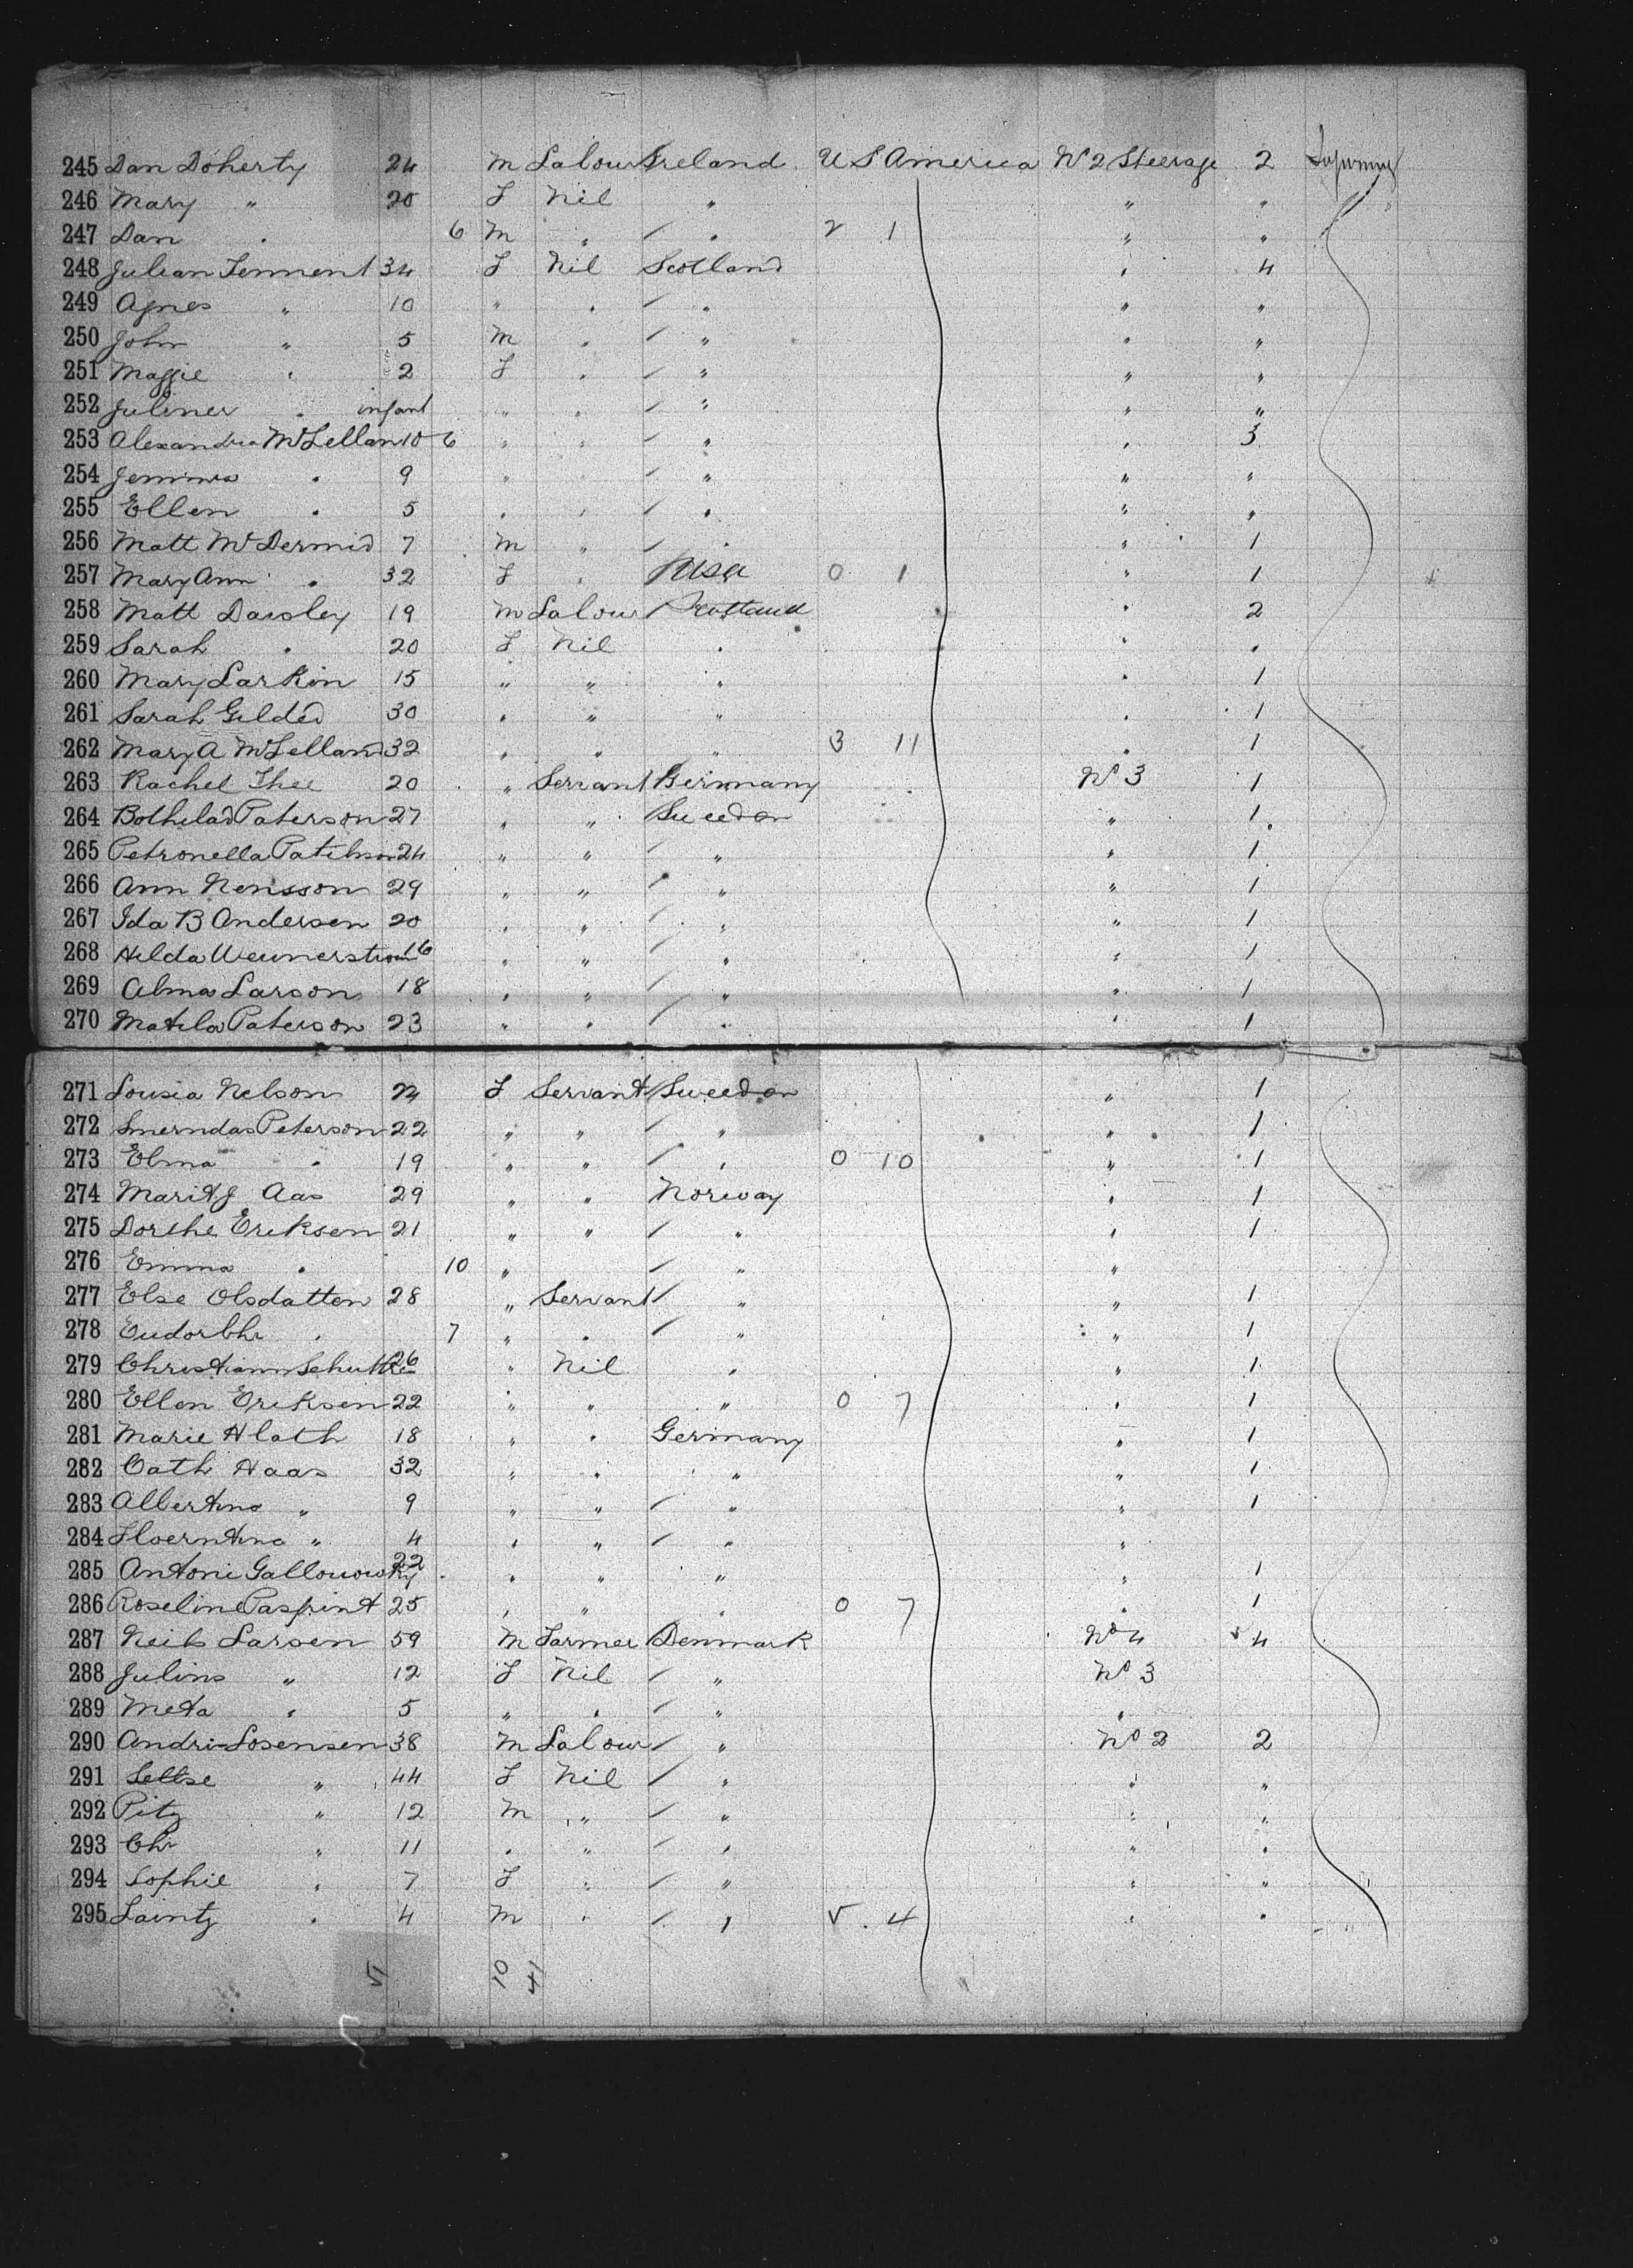 245 Dan Doherty 24 M Labour Ireland U S America No 2 Steerage 2
246 Mary " 20 F Nil " " "
247 Dan " 6 M " / " 2 1 " "
248 Julian Tennent 34 F Nil Scotland " 4
249 Agnes " 10 " " / " " "
250 John " 5 M " / " " "
251 Maggie " 2 F " / " " "
252 Juliner " infant " " / " " "
253 Alexandria McLellan 10 6 " " / " " 3
254 Jemima " 9 " " / " " "
255 Ellen " 5 " " / " " "
256 Matt McDermid 7 M " / " " 1
257 Mary Ann " 32 F " USA 0 1 " 1
258 Matt Dawsley 19 M Labour Scotland " 2
259 Sarah " 20 F Nil " " "
260 Mary Larkin 15 " " " " 1
261 Sarah Gilded 30 " " " " 1
262 Mary A McLelland 32 " " " 3 11 " 1
263 Rachel Thee 20 " Servant Germany No 3 1
264 Bothelad Paterson 27 " " Sweeden " 1
265 Petronella 24 " " / " " 1
266 Ann Nensson 29 " " / " " 1
267 Ida B Andersen 20 " " / " " 1
268 Hilda Wennerstrom 16 " " / " " 1
269 Alma Larson 18 " " / " " 1
270 Matila Paterson 23 " " / " " 1
271 Lousia Nelson 24 F Servant Sweeden " 1
272 Smerndas Peterson 22 " " / " " 1
273 Elma " 19 " " / " 0 10 " 1
274 Marit J Aas 29 " " Norway " 1
275 Dorthe Eriksen 21 " " / " " 1
276 Emma " 10 " / " "
277 Else Olsdatten 28 " Servant / " " 1
278 " 7 " " / " " 1
279 Christiann Schutte 26 " Nil " " 1
280 Ellen Eriksen 22 " " " 0 7 " 1
281 Marie Hlath 18 " " Germany " 1
282 Cath Haas 32 " " " " 1
283 Albertina " 9 " " / " " 1
284 Floerntina " 4 " " / " "
285 Antoni Gallouowky 22 " " " " 1
286 Roseline Paspint 25 " " " 0 7 " 1
287 Neils Larsen 59 M Farmer Denmark No 4 4
288 Julins " 12 F Nil / " No 3
289 Meta " 5 " " / " "
290 Andri Sosensen 38 M Labour / " No 2 2
291 Seltse " 44 F Nil / " " "
292 Pitz " 12 M " / " " "
293 Chr " 11 " " / " " "
294 Sophie " 7 F " / " " "
295 Laintz " 4 M " / " 5 4 " "
5 10 41